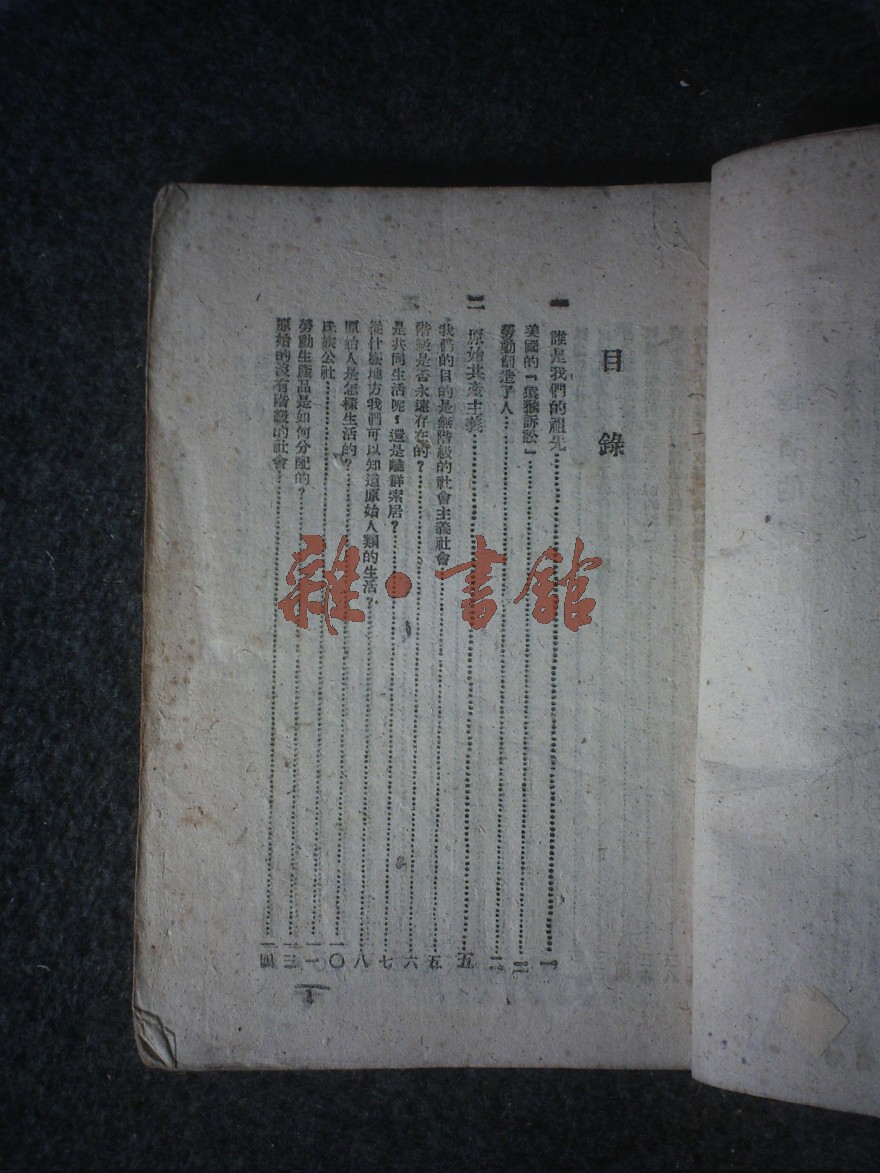 目錄
一 誰是我們的祖先 一
美國的「猿猴訴訟」 二
勞動創造了人 二
二 原始共產主義 五
我們的目的是無階級的社會主義社會 五
階級是否永遠存在的? 六
是共同生活呢,還是離群索居? 七
從什麼地方我們可以知道原始人類的生活? 八
原始人是怎樣生活的? 一〇
氏族公社 一一
勞動生產品是如何分配的? 一三
原始的沒有階級的社會 一四
1
雜·書館